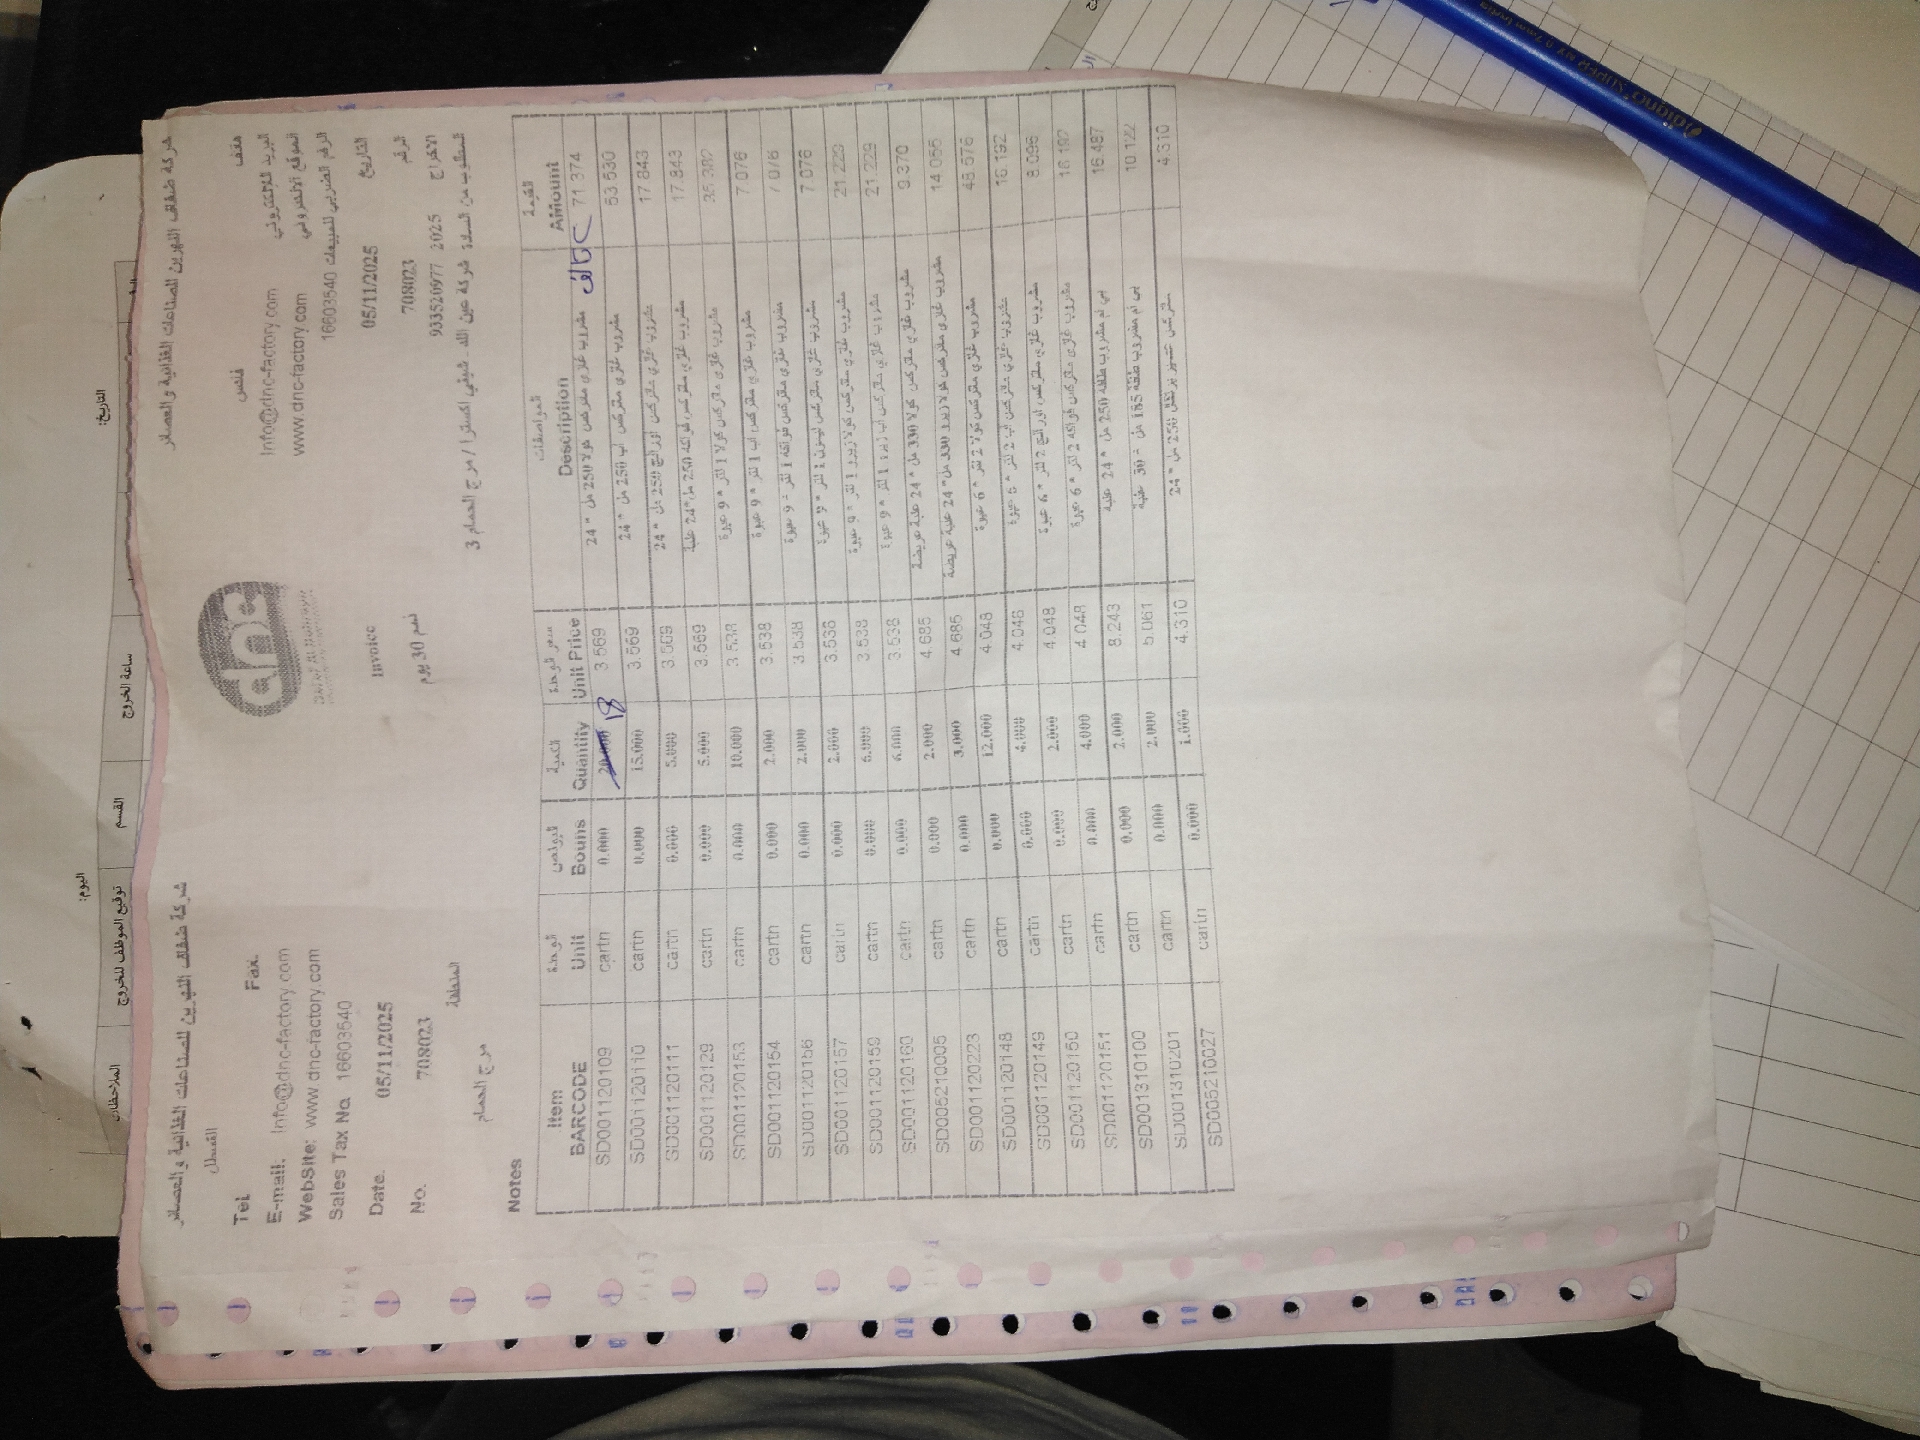 شركة ضفاف النهرين للصناعات الغذائية والعصائر
شركة ضفاف النهرين للصناعات الغذائية والعصائر
القسطل
dnc
Tel. Fax. فاكس هاتف
E-mail. Info@dnc-factory.com Info@dnc-factory.com البريد الالكتروني
WebSite: www.dnc-factory.com www.dnc-factory.com الموقع الالكتروني
Sales Tax No. 16603540 16603540 الرقم الضريبي للمبيعات
Date. 05/11/2025 Invoice 05/11/2025 التاريخ
No. 708023 ذمم 30 يوم 708023 الرقم
المنطقة 933520977 2025 الاخراج
مرج الحمام
المطلوب من السادة شركة عين الله - شيفي اكسترا / مرج الحمام 3
Notes
Item الوحدة البونص الكمية سعر الوحدة المواصفات القيمة
BARCODE Unit Bouns Quantity Unit Price Description Amount
SD001120109 cartn 0.000 20.000 18 3.569 مشروب غازي متركس كولا 250 مل * 24 تالف 71.374
SD001120110 cartn 0.000 15.000 3.569 مشروب غازي متركس اب 250 مل * 24 53.530
SD001120111 cartn 0.000 5.000 3.569 مشروب غازي متركس اورانج 250 مل * 24 17.843
SD001120129 cartn 0.000 5.000 3.569 مشروب غازي متركس فواكه 250 مل * 24 علبة 17.843
SD001120153 cartn 0.000 10.000 3.538 مشروب غازي متركس كولا 1 لتر * 9 عبوة 35.382
SD001120154 cartn 0.000 2.000 3.538 مشروب غازي متركس اب 1 لتر * 9 عبوة 7.076
SD001120156 cartn 0.000 2.000 3.538 مشروب غازي متركس فواكه 1 لتر * 9 عبوة 7.076
SD001120157 cartn 0.000 2.000 3.538 مشروب غازي متركس ليمون 1 لتر * 9 عبوة 7.076
SD001120159 cartn 0.000 6.000 3.538 مشروب غازي متركس كولا زيرو 1 لتر * 9 عبوة 21.229
SD001120160 cartn 0.000 6.000 3.538 مشروب غازي متركس اب زيرو 1 لتر * 9 عبوة 21.229
SD005210005 cartn 0.000 2.000 4.685 مشروب غازي متركس كولا 330 مل * 24 علبة عريضة 9.370
SD001120223 cartn 0.000 3.000 4.685 مشروب غازي متركس كولا زيرو 330 مل * 24 علبة عريضة 14.055
SD001120148 cartn 0.000 12.000 4.048 مشروب غازي متركس كولا 2 لتر * 6 عبوة 48.576
SD001120149 cartn 0.000 4.000 4.048 مشروب غازي متركس اب 2 لتر * 6 عبوة 16.192
SD001120150 cartn 0.000 2.000 4.048 مشروب غازي متركس اورانج 2 لتر * 6 عبوة 8.096
SD001120151 cartn 0.000 4.000 4.048 مشروب غازي متركس فواكه 2 لتر * 6 عبوة 16.192
SD001310100 cartn 0.000 2.000 8.243 بي ام مشروب طاقة 250 مل * 24 علبة 16.487
SD001310201 cartn 0.000 2.000 5.061 بي ام مشروب طاقة 185 مل * 30 علبة 10.122
SD005210027 cartn 0.000 1.000 4.310 متركس 250 مل * 24 4.310
التاريخ:
اليوم:
ساعة الخروج
القسم
توقيع الموظف للخروج
الملاحظات